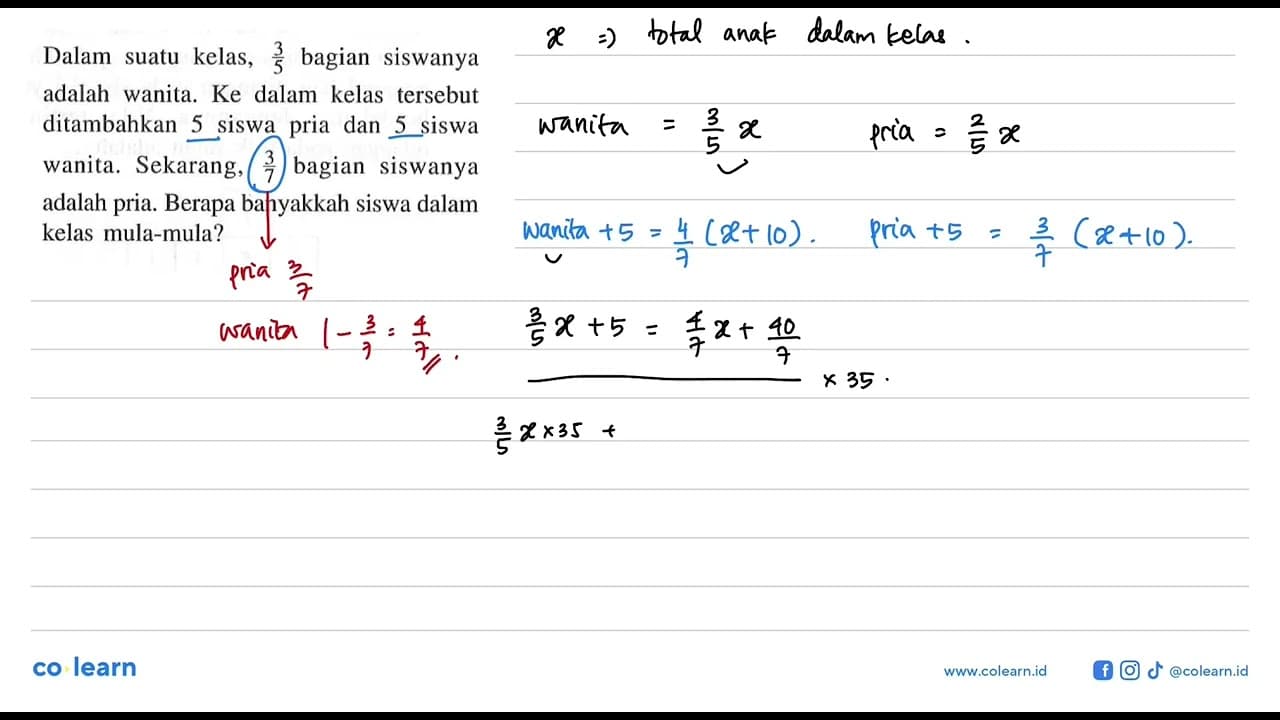 Dalam suatu kelas, 3/5 bagian siswanya
adalah wanita. Ke dalam kelas tersebut
ditambahkan 5 siswa pria dan 5 siswa
wanita. Sekarang, 3/7 bagian siswanya
adalah pria. Berapa banyakkah siswa dalam
kelas mula-mula?
pria 3/7
wanita 1 - 3/7 = 4/7 .
x => total anak dalam kelas .
wanita = 3/5 x pria = 2/5 x
wanita + 5 = 4/7 (x + 10) . pria + 5 = 3/7 (x + 10).
3/5 x + 5 = 4/7 x + 40/7
x 35 .
3/5 x × 35 +
co learn
www.colearn.id @colearn.id